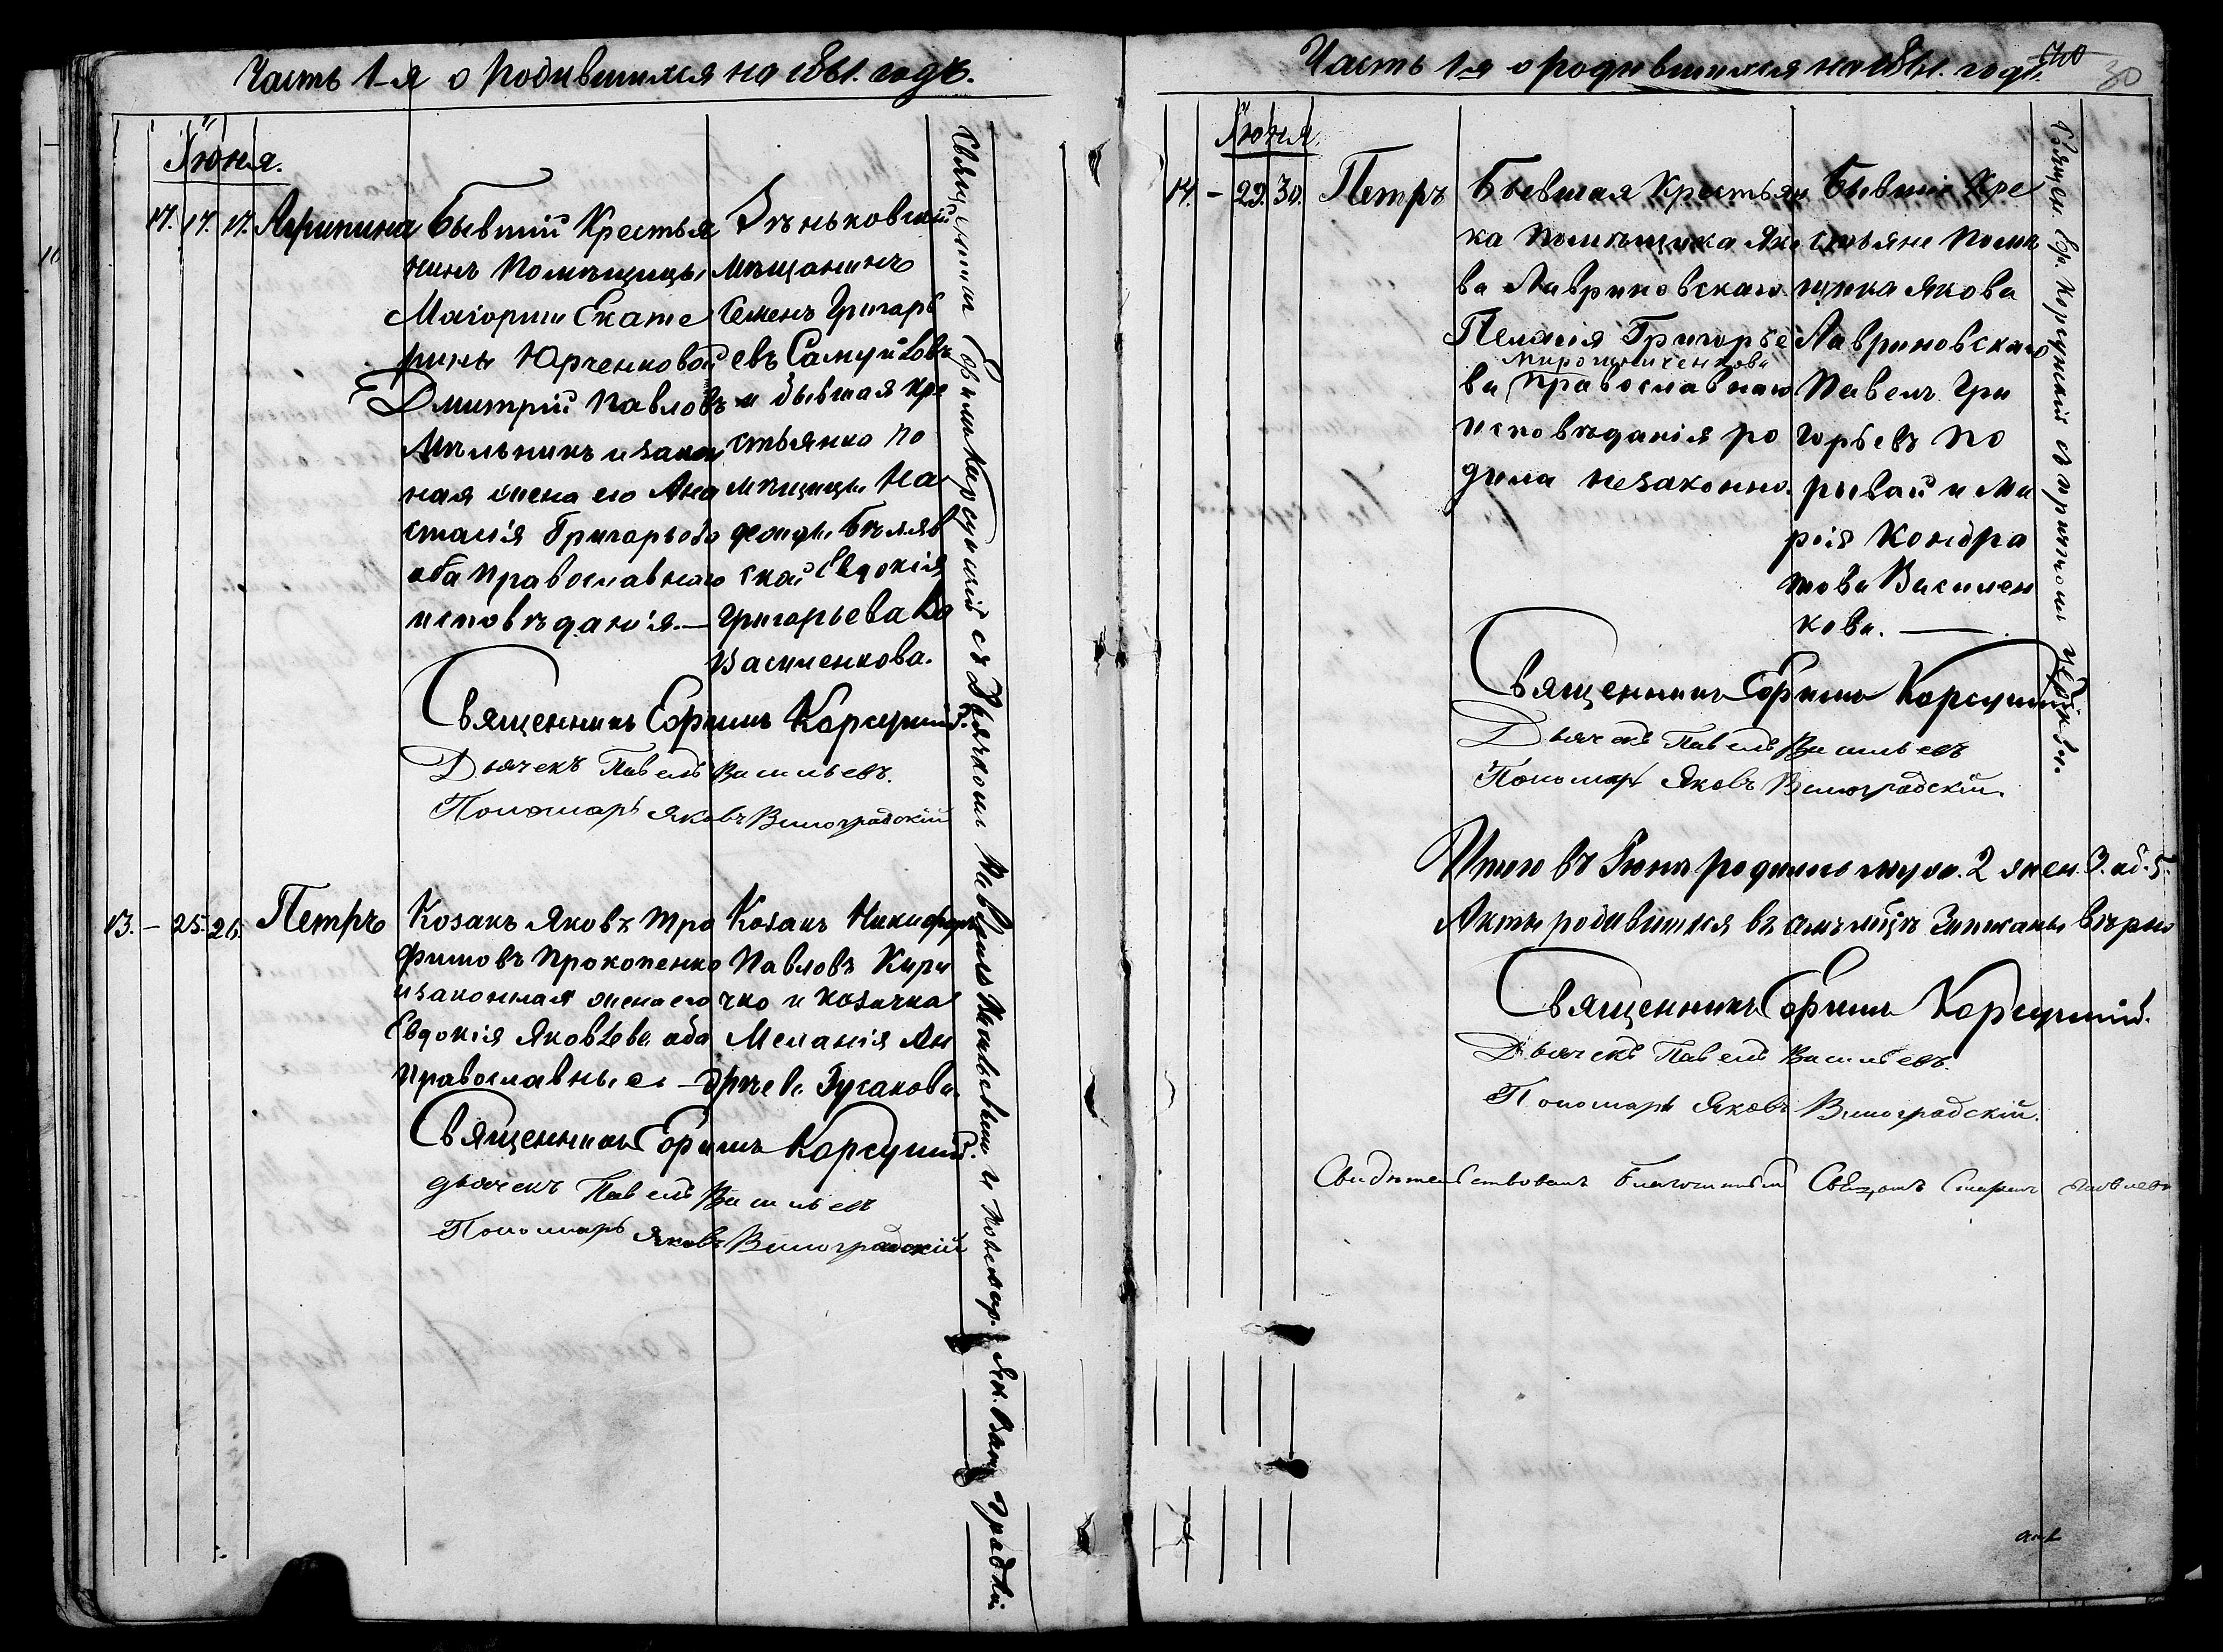 Часть 1-я о родившихся на 1861. годъ.
Іюня.
17. 17. 17. Агрипина
Бывшій Крестья
нинъ Помѣщицы
Маіорши Екате
рины Юрченковой
Дмитрій Павловъ
Мѣльникъ и закон
ная жена его Ана
стасія Григорьева
оба православнаго
исповѣданія. —
Зѣньковскій
мѣщанинъ
Семенъ Григорь
евъ Самуйловъ
и бывшая кре
стьянка по
мѣщицы На
дежды Бѣляв
ской Евдокія
Григорьева Ва
Василенкова.
Священникъ Ефимъ Корсунскій.
Дьячекъ Павелъ Васильевъ.
Пономарь Яковъ Виноградскій
13. – 25. 26. Петръ
Козакъ Яковъ Тро
фимовъ Прокопенко
и законная жена его
Евдокія Яковлева оба
православные. —
Козакъ Никифоръ
Павловъ Кири
чко и козачка
Меланія Ан
дрѣева Гусакова.
Священникъ Ефимъ Корсунскій.
Дьячекъ Павелъ Васильевъ
Пономарь Яковъ Виноградскій
Священникъ Ефимъ Корсунскій съ Дьячкомъ Павломъ Васильевымъ и пономар. Як. Виноградскій
Часть 1-я о родившихся на 1861. годъ.
30
Іюня.
14. – 29. 30. Петръ
Бывшая Крестьян
ка Помѣщика Яко
ва Лавриновскаго
Пелагія Григорье
ва православнаго
исповѣданія ро
дила незаконно.
Бывшіе Кре
стьяне Помѣ
щика Якова
Лавриновскаго
Павелъ Гри
горьевъ По
рывай и Ма
рія Кондра
това Василен
кова. —
Священникъ Ефимъ Корсунскій
Дьячекъ Павелъ Васильевъ
Пономарь Яковъ Виноградскій.
Священ. Еф. Корсунскій съ причтомъ церкви.
Итого въ Іюнѣ родилось муж. 2 жен. 3. об. 5.
Акты родившихся въ семъ мѣсцѣ Записаны вѣрно
Священникъ Ефимъ Корсунскій.
Дьячекъ Павелъ Васильевъ.
Пономарь Яковъ Виноградскій.
Свидѣтельствовалъ Благочинный